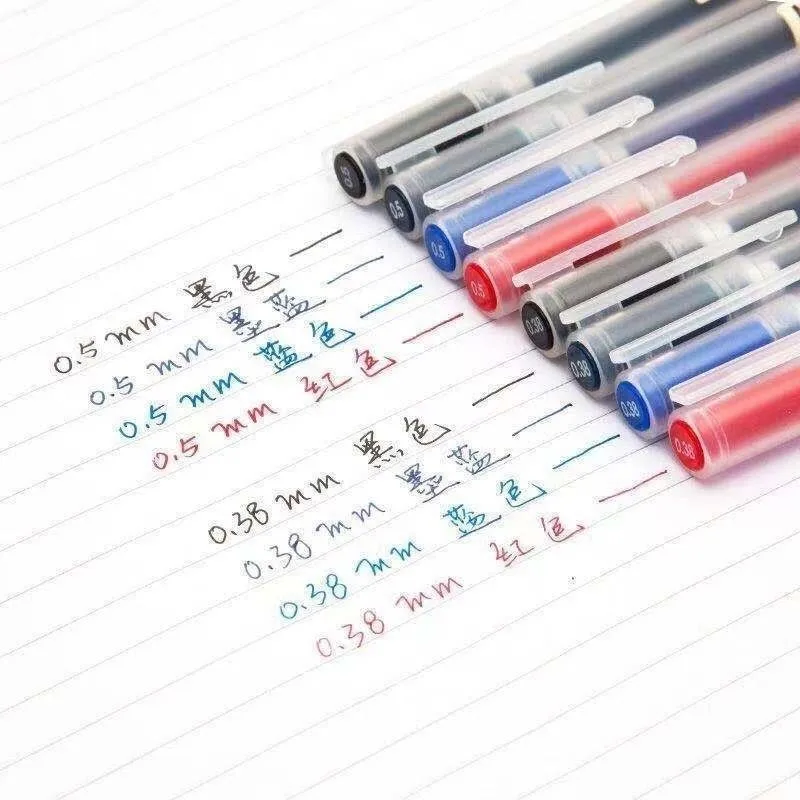 0.5
0.5
0.5
0.5
0.38
0.38
0.38
0.38
0.5 mm 黑色 —
0.5 mm 墨蓝 —
0.5 mm 蓝色 —
0.5 mm 红色 —
0.38 mm 黑色 —
0.38 mm 墨蓝 —
0.38 mm 蓝色 —
0.38 mm 红色 —